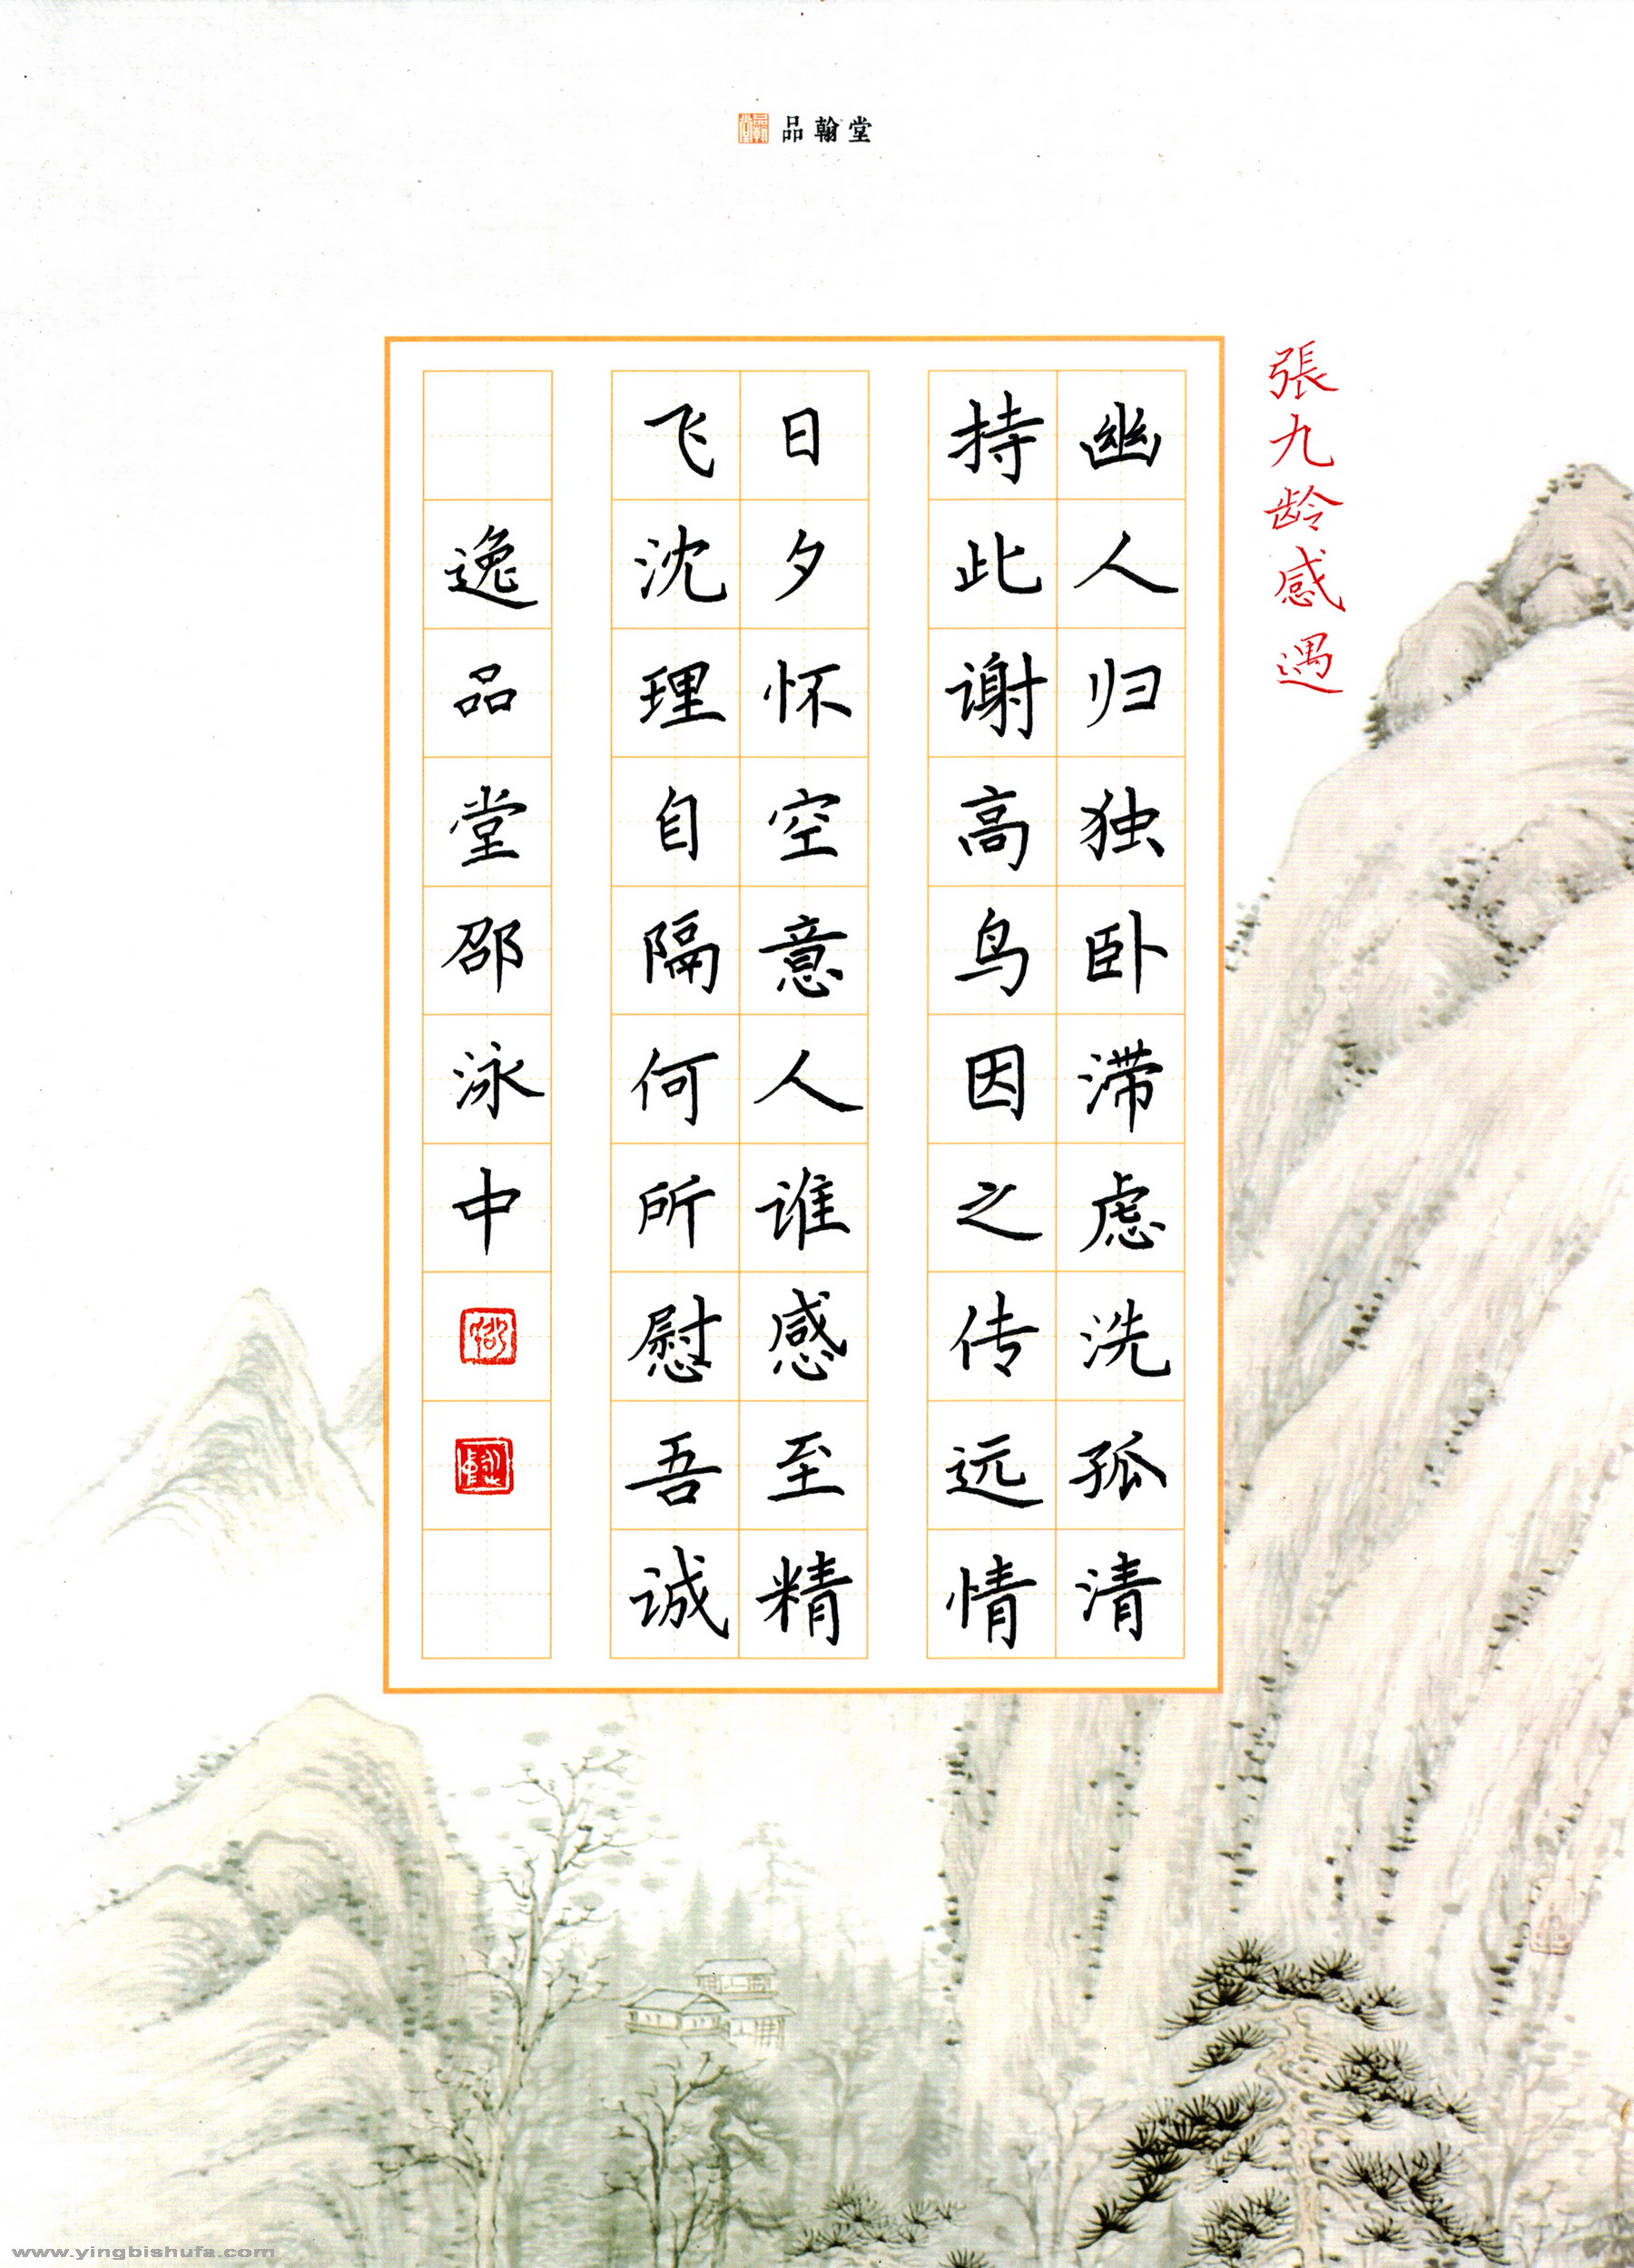 品翰堂
張九龄感遇
幽人归独卧滞虑洗孤清
持此谢高鸟因之传远情
日夕怀空意人谁感至精
飞沈理自隔何所慰吾诚
逸品堂邵泳中
www.yingbishufa.com